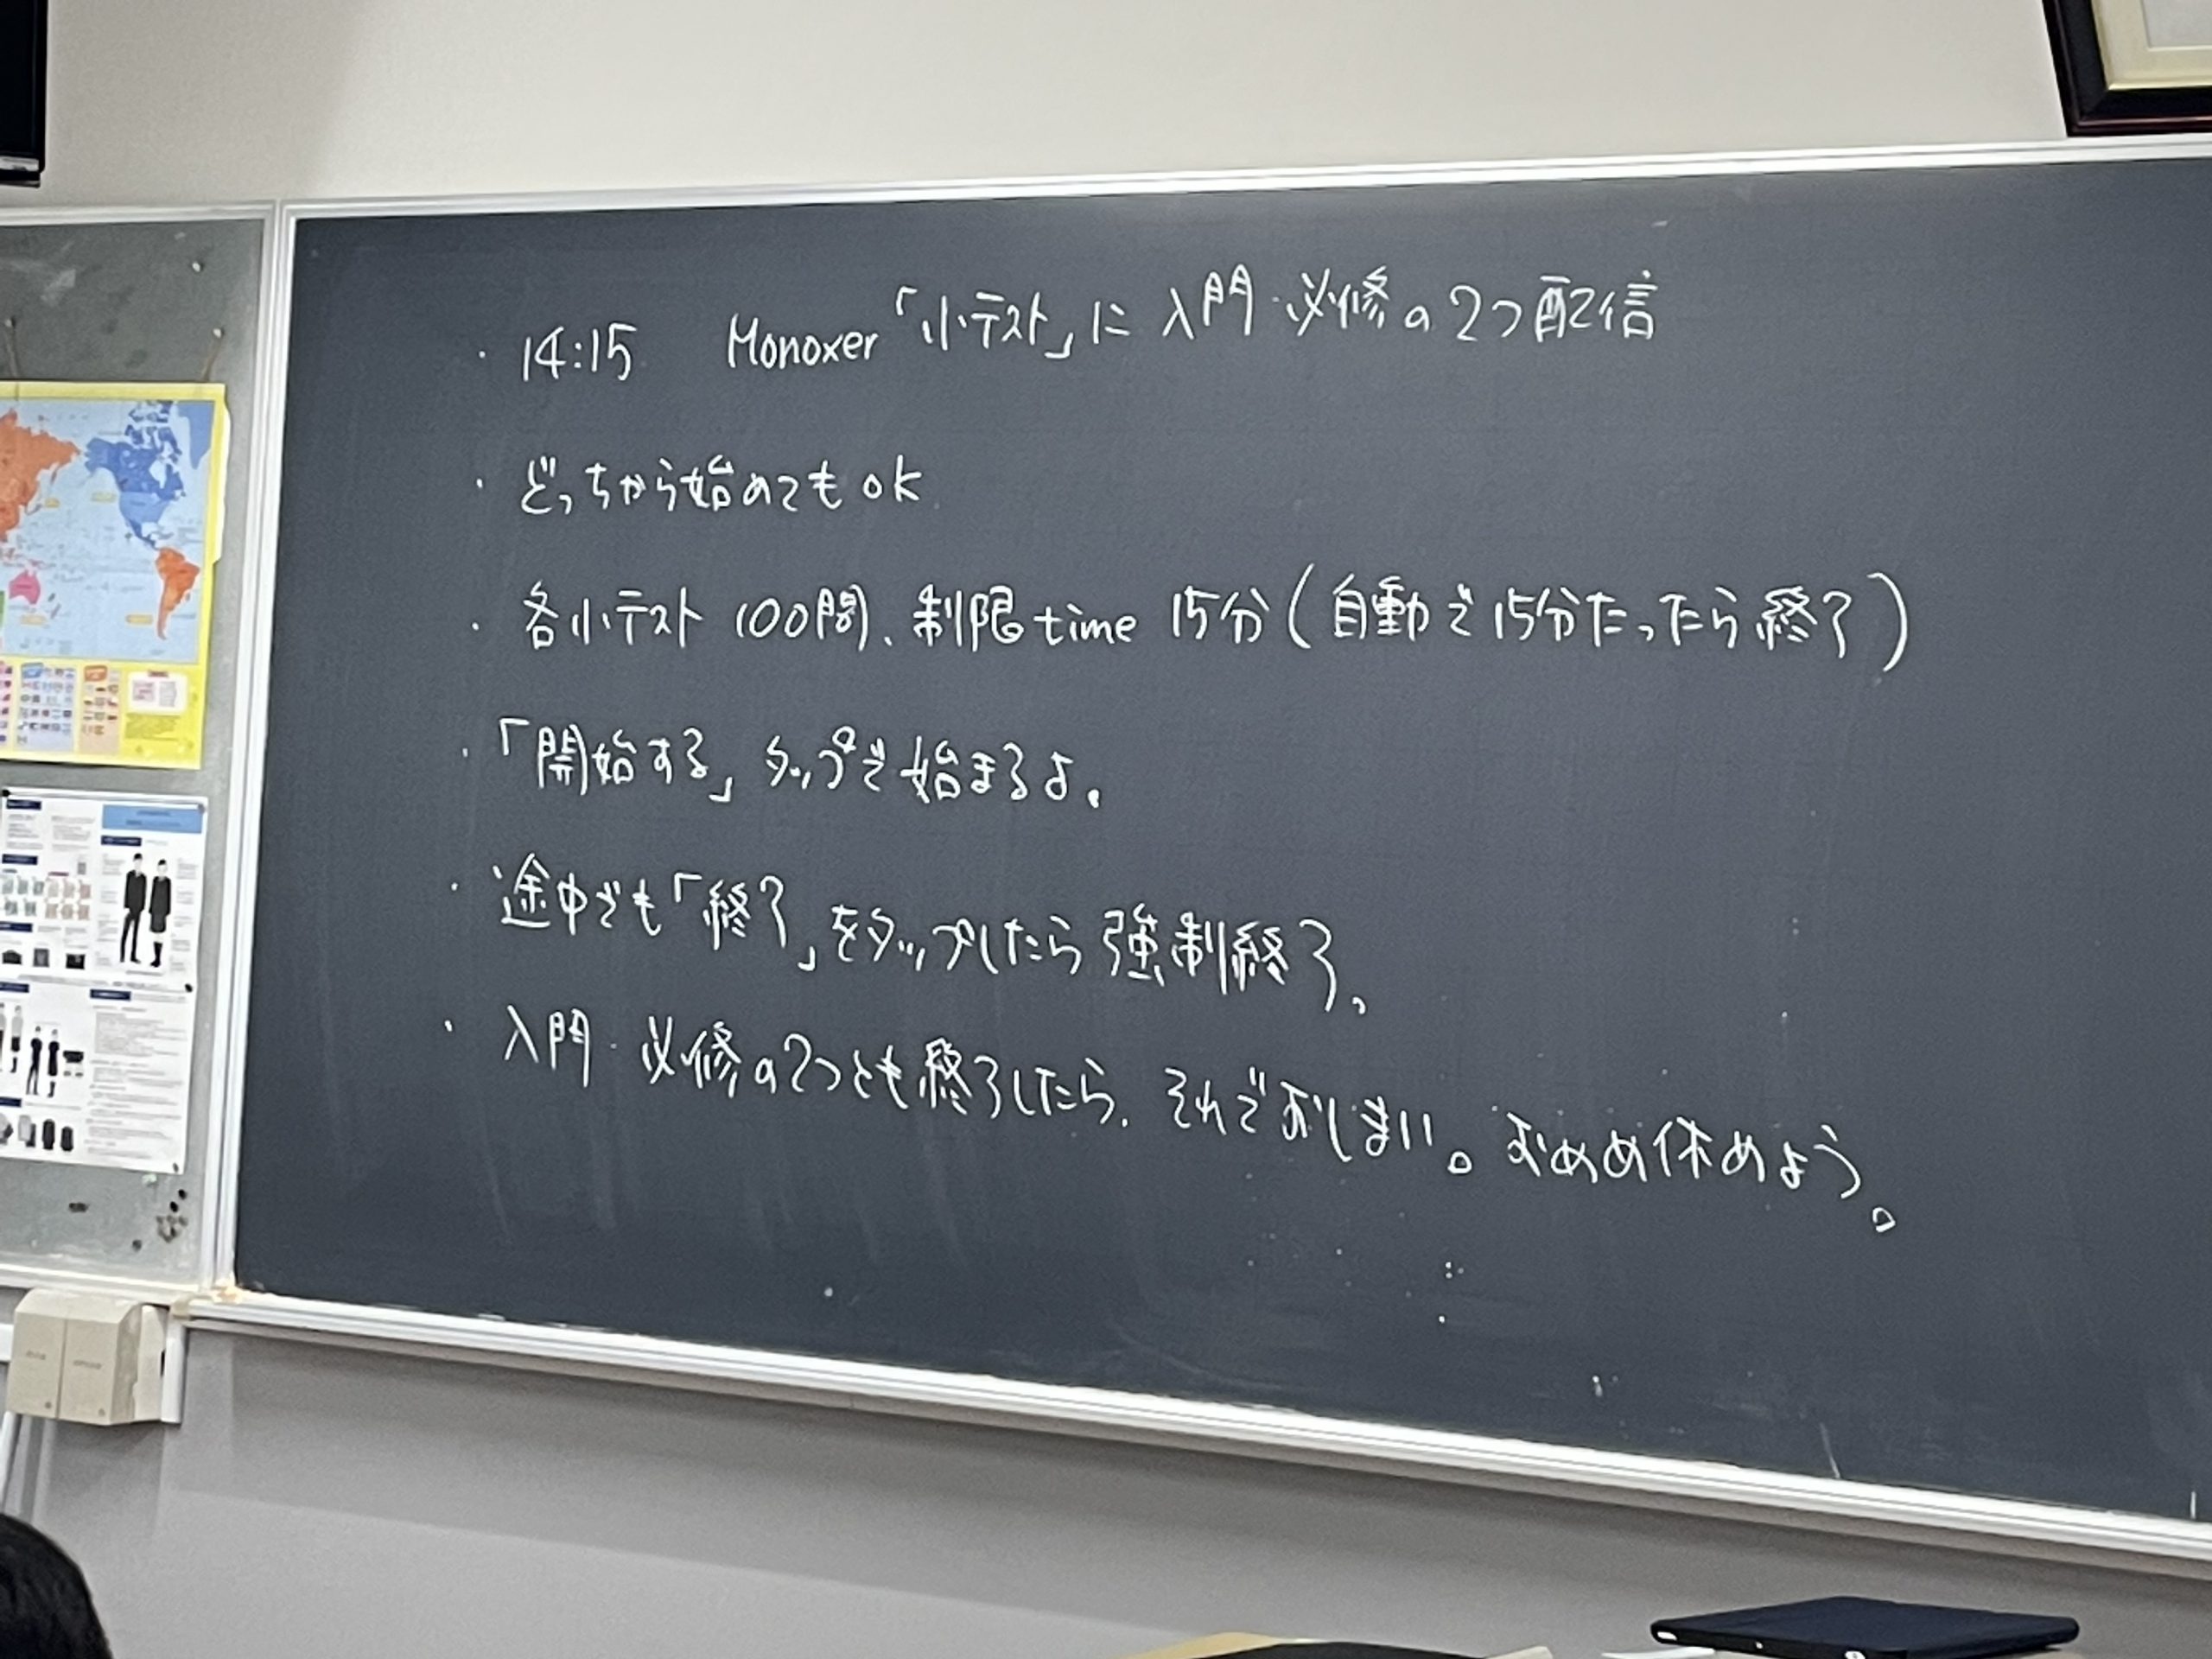 ・14:15 Monoxer「小テスト」に 入門・必修の2つ配信
・どっちから始めてもok
・各小テスト 100問、制限time 15分(自動で15分たったら終了)
・「開始する」タップで始まるよ。
・途中でも「終了」をタップしたら強制終了。
・入門・必修の2つとも終了したら、それでおしまい。おめめ休めよう。